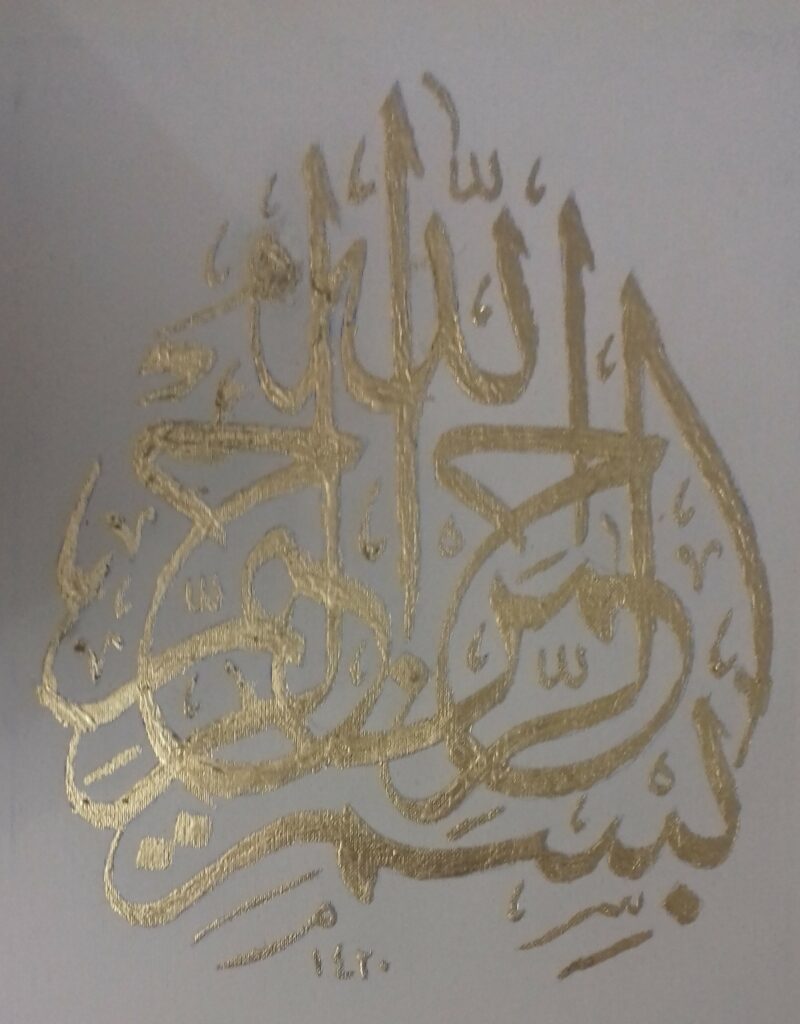 بِسْمِ اللّٰهِ الرَّحْمٰنِ الرَّحِيمِ
١٤٢٠